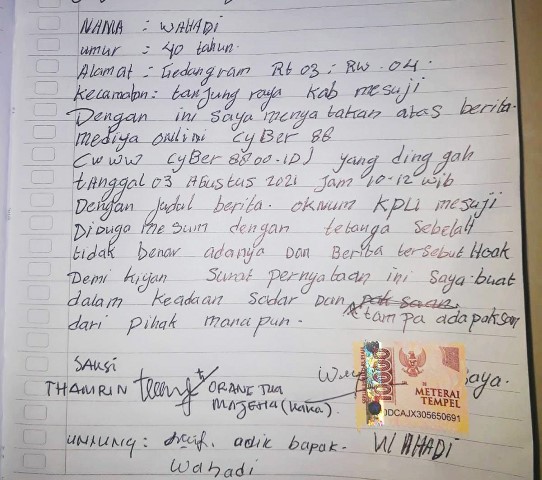 NAMA : WAHADI
umur : 40 tahun.
Alamat : Gedangram Rt 03 ; RW . 04 .
kecamatan : tanjung raya kab mesuji
Dengan ini saya menyatakan atas berita.
mediya onlini cyBer 88
(www cyBer 8800.ID) yang ding gah
tanggal 03 Agustus 2021 jam 10.12 wib
Dengan judul berita. OKNUM KPLI mesuji
Diduga mesum dengan tetanga sebelaH
tidak benar adanya Dan Berita tersebut Hoak
Demi kiyan Surat pernyataan ini saya buat
dalam keadaan Sadar Dan paksaan
dari pihak manapun. tampa ada paksan
SAKSI
THAMRIN ORANE TUA saya.
MAJEHA (kaka).
10000
METERAI
TEMPEL
0DCAJX305650691
UNTUNG : adik bapak. WAHADI
Wahadi